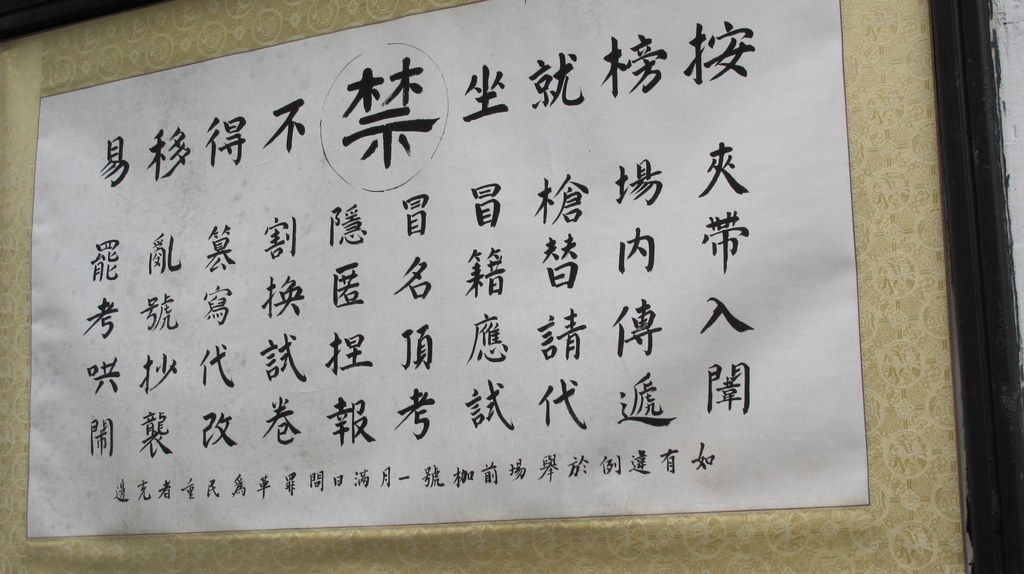 按榜就坐禁不得移易
夾帶入闈
場内傳遞
槍替請代
冒籍應試
冒名頂考
隱匿捏報
割換試卷
篡寫代改
亂號抄襲
罷考哄鬧
如有違例於舉場前枷號一月滿日問罪革為民重者充邊